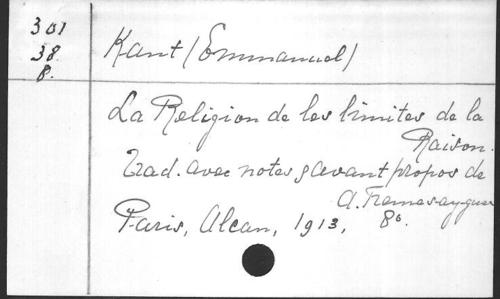 301
38.
8.
Kant (Emmanuel)
La Religion de les limites de la
Raison.
Trad. avec notes & avant propos de
A. Tremesaygues
Paris, Alcan, 1913, 8º.